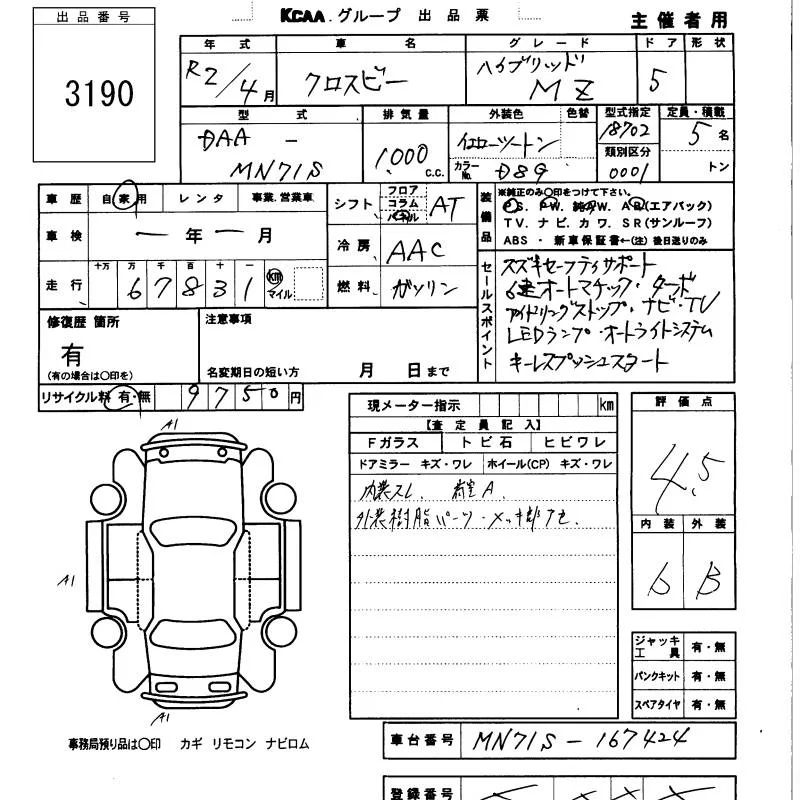 出品番号
3190
KCAA.グループ 出品票
主催者用
年式 車名 グレード ドア 形状
R2/4月 クロスビー ハイブリッド MZ 5
型式 排気量 外装色 色替 型式指定 定員・積載
DAA- MN71S 1000 C.C. イエローツートン カラーNo. D8G 18702 類別区分 0001 5名 トン
車歴 自家用 レンタ 事業.営業車
車検 ー年ー月
走行 十万 万 千 百 十 一 67831 km マイル
シフト フロア コラム パネル AT
冷房 AAC
燃料 ガソリン
装備品 ※純正のみ○印をつけて下さい。
P S. P W. 純 W. A B(エアバック)
T V. ナ ビ. カ ワ. S R(サンルーフ)
A B S ・ 新車保証書←(注)後日送りのみ
セールスポイント
スズキセーフティサポート
6速オートマチック・ターボ
アイドリングストップ・ナビ・TV
LEDランプ・オートライトシステム
キーレスプッシュスタート
修復歴 箇所 有 (有の場合は○印を)
注意事項
名変期日の短い方 月 日まで
リサイクル料 有・無 9750円
現メーター指示 km
【査定員記入】
Fガラス トビ石 ヒビワレ
ドアミラー キズ・ワレ ホイール(CP) キズ・ワレ
内装スレ 荷室A.
外装樹脂パーツ・メッキ部アセ
評価点
4.5
内装 外装
b B
A1
A1
A1
ジャッキ工具 有・無
パンクキット 有・無
スペアタイヤ 有・無
事務局預り品は○印 カギ リモコン ナビロム
車台番号 MN71S-167424
登録番号